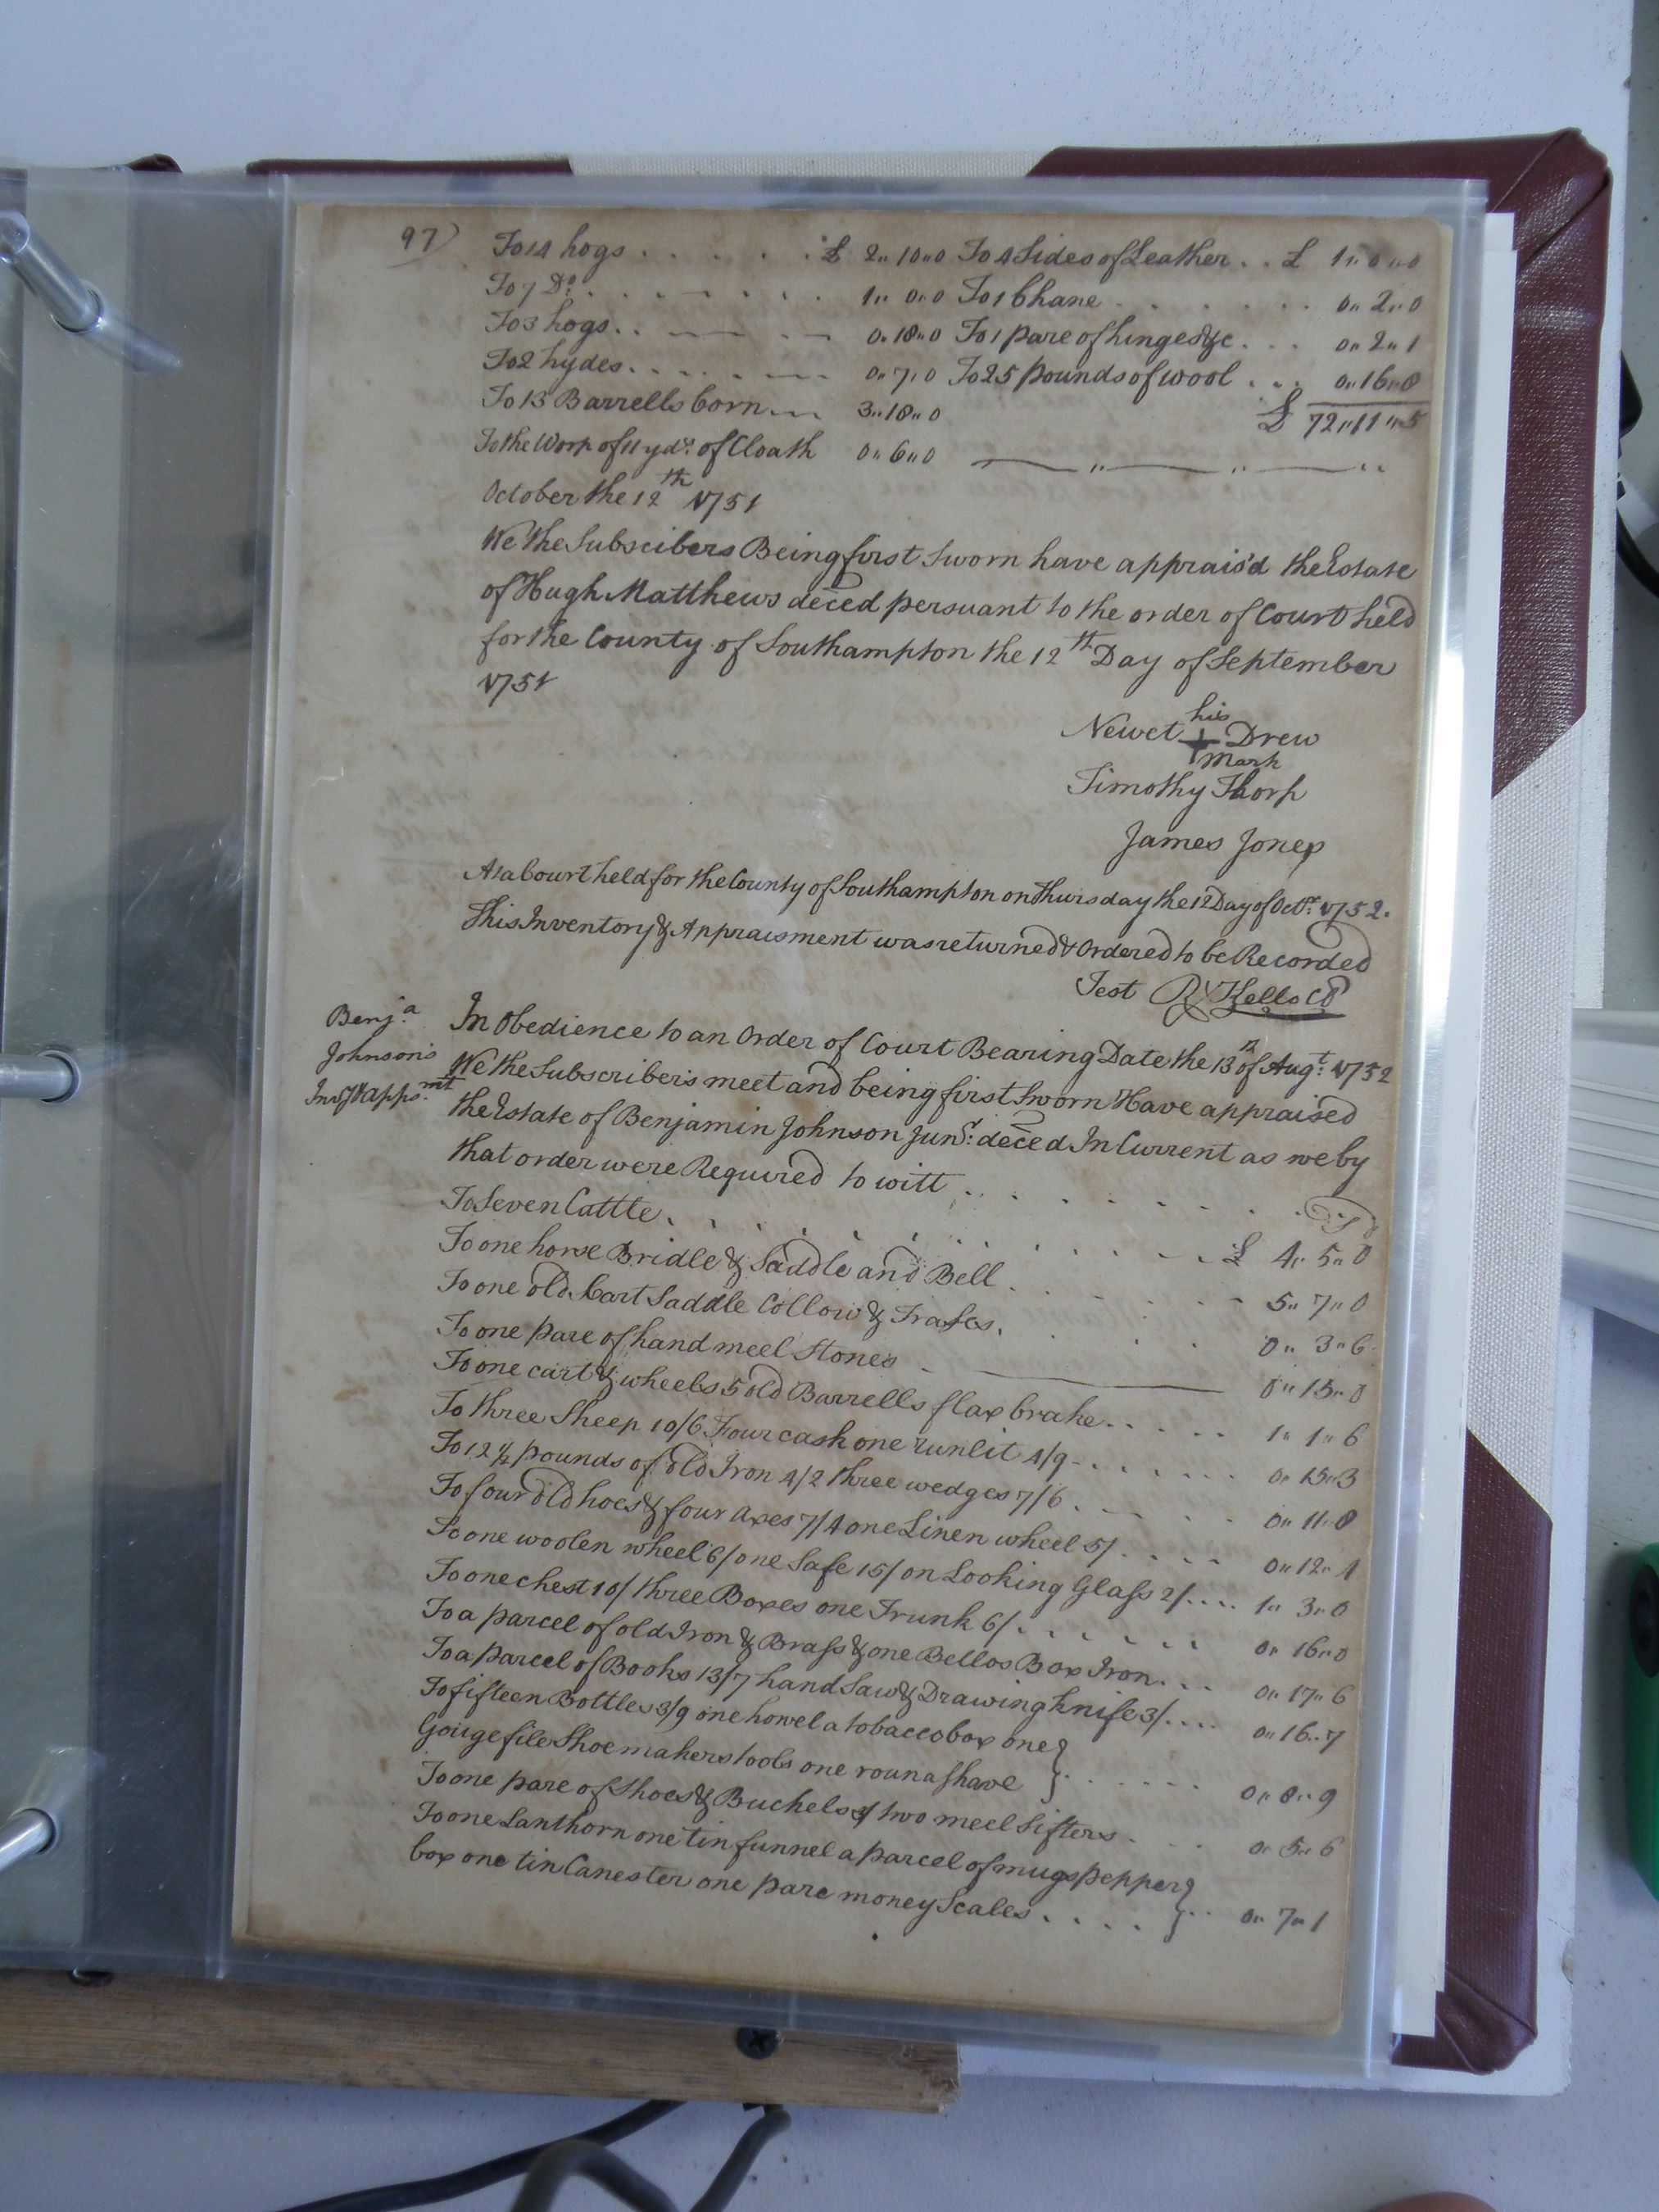 97)
To 14 hogs . . . . . . £ 2,, 10,, 0 To 4 Sides of Leather . . £ 1,, 0,, 0
To 7 Do. . . . . . . 1,, 0,, 0 To 1 Chane . . . . . . 0,, 2,, 0
To 3 hogs . . . . . 0,, 18,, 0 To 1 pare of hinges &c . . . 0,, 2,, 1
To 2 hydes . . . . . 0,, 7,, 0 To 25 pounds of wool . . . 0,, 16,, 8
To 13 Barrells Corn 3,, 18,, 0 £ 72,, 11,, 5
To the Worp of 11 yds. of Cloath 0,, 6,, 0
October the 12th 1751
We the Subscibers Being first Sworn have apprais'd the Estate
of Hugh Matthews deced persuant to the order of Court held
for the County of Southampton the 12th Day of September
1751
Newet his + mark Drew
Timothy Thorp
James Jones
At a Court held for the County of Southampton on Thursday the 12 Day of Octr. 1752.
This Inventory & Appraisment was returned & Ordered to be Recorded
Test Rd Kello Cl
Benja. Johnson's Invy & appsmt.
In Obedience to an Order of Court Bearing Date the 13th of Augt. 1752
We the Subscribers meet and being first Sworn Have appraised
the Estate of Benjamin Johnson Junr: deced In Current as we by
that order were Required to witt . . . . . . .
To Seven Cattle . . . . . . . £ 4,, 5,, 0
To one horse Bridle & Saddle and Bell . . . . . 5,, 7,, 0
To one old Cart Saddle Collow & Trases . . . 0,, 3,, 6
To one pare of hand meel Stones . 0,, 15,, 0
To one cart & wheels 5 old Barrells flax brake . . . . . 1,, 1,, 6
To three Sheep 10/6 Four cash one runlit 4/9 . . . . . . 0,, 15,, 3
To 12 1/2 pounds of old Iron 4/2 three wedges 7/6 . . . . 0,, 11,, 8
To four old hoes & four axes 7/4 one Linen wheel 5/ . . . . 0,, 12,, 4
To one woolen wheel 6/ one Safe 15/ on Looking Glass 2/ . . . . 1,, 3,, 0
To one chest 10/ three Boxes one Trunk 6/ . . . . . . 0,, 16,, 0
To a parcel of old Iron & Brass & one Bellos Box Iron . . . 0,, 17,, 6
To a parcel of Books 13/7 hand Saw & Drawing knife 3/ . . . . 0,, 16,, 7
To fifteen Bottles 3/9 one howel a tobacco box one }
Gouge file Shoemakers tools one round shave } . . . . . . 0,, 8,, 9
To one pare of Shoes & Buckels 3/ two meel Sifters . . . 0,, 5,, 6
To one Lanthorn one tin funnel a parcel of mugs pepper }
box one tin Canester one pare money Scales . . . . } . . 0,, 7,, 1